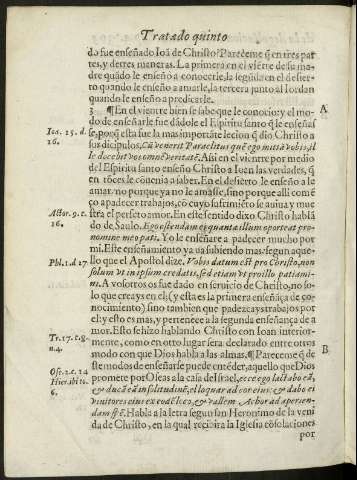 Tratado quinto
do fue enseñado Ioã de Christo? Pareceme q̃ en tres par
tes, y de tres maneras. La primera en el viẽtre de su ma
dre quãdo le enseño a conocerle, la segũda en el desier
to quando le enseño a amarle, la tercera junto al Iordan
quando le enseño a predicarle.
3 ¶ En el vientre bien se sabe que le conocio: y el mo-
do de enseñarle fue dãdole el Espiritu santo q̃ le enseñas
se, porq̃ esta fue la mas importãte lecion q̃ dio Christo a
sus dicipulos. Cũ venerit Paraclitus quẽ ego mittã vobis, il
le docebit vos omnẽ veritatẽ. Assi en el vientre por medio
del Espiritu santo enseño Christo a Iuan las verdades, q̃
en tõces le cõuenia a saber. En el desierto le enseño a la
amar no porque ya no le amasse, sino porque alli como em
ço a padecer trabajos, cõ cuyo sufrimiẽto se auiua y mue
stra el perfeto amor. En este sentido dixo Christo hablã
do de Saulo. Ego ostendam ei quanta illum oporteat pro
nomine meo pati. Yo le enseñare a padecer mucho por
mi. Este enseñamiento ya va subiendo mas, segun aque-
llo que el Apostol dize. Vobis datum est pro Christo, non
solum vt in ipsum credatis, sed etiam vt pro illo patiami-
ni. A vosotros os fue dado en seruicio de Christo, no so-
lo que creays en el: (y esta es la primera enseñãça de co-
nocimiento) sino tambien que padezcays trabajos por
el: y esto es mas, y pertenece a la segunda enseñança de a
mor. Esto se hizo hablando Christo con Ioan interior-
mente, como en otro lugar sera declarado entre otros
modo con que Dios habla a las almas. ¶ Pareceme q̃ de
ste modos de enseñarse puede entẽder, aquello que Dios
promete por Oseas a la casa del Israel, ecce ego lactabo eã,
& ducã eã in solitudinẽ, & loquar ad cor eius: & dabo ei
vinitores eius ex eodẽ loco, & vallem Achor ad aperien-
dam spẽ. Habla a la letra segun san Hieronimo de la veni
da de Christo, en la qual recibira la Iglesia cõsolaciones
por
A
Ioa. 15. d.
26.
Actor. 9. c.
16.
Ph. 1. d 27.
Tr. 17. c. 8.
n. 4.
B
Ose. 2. c. 14
Hier. ibi to.
6.